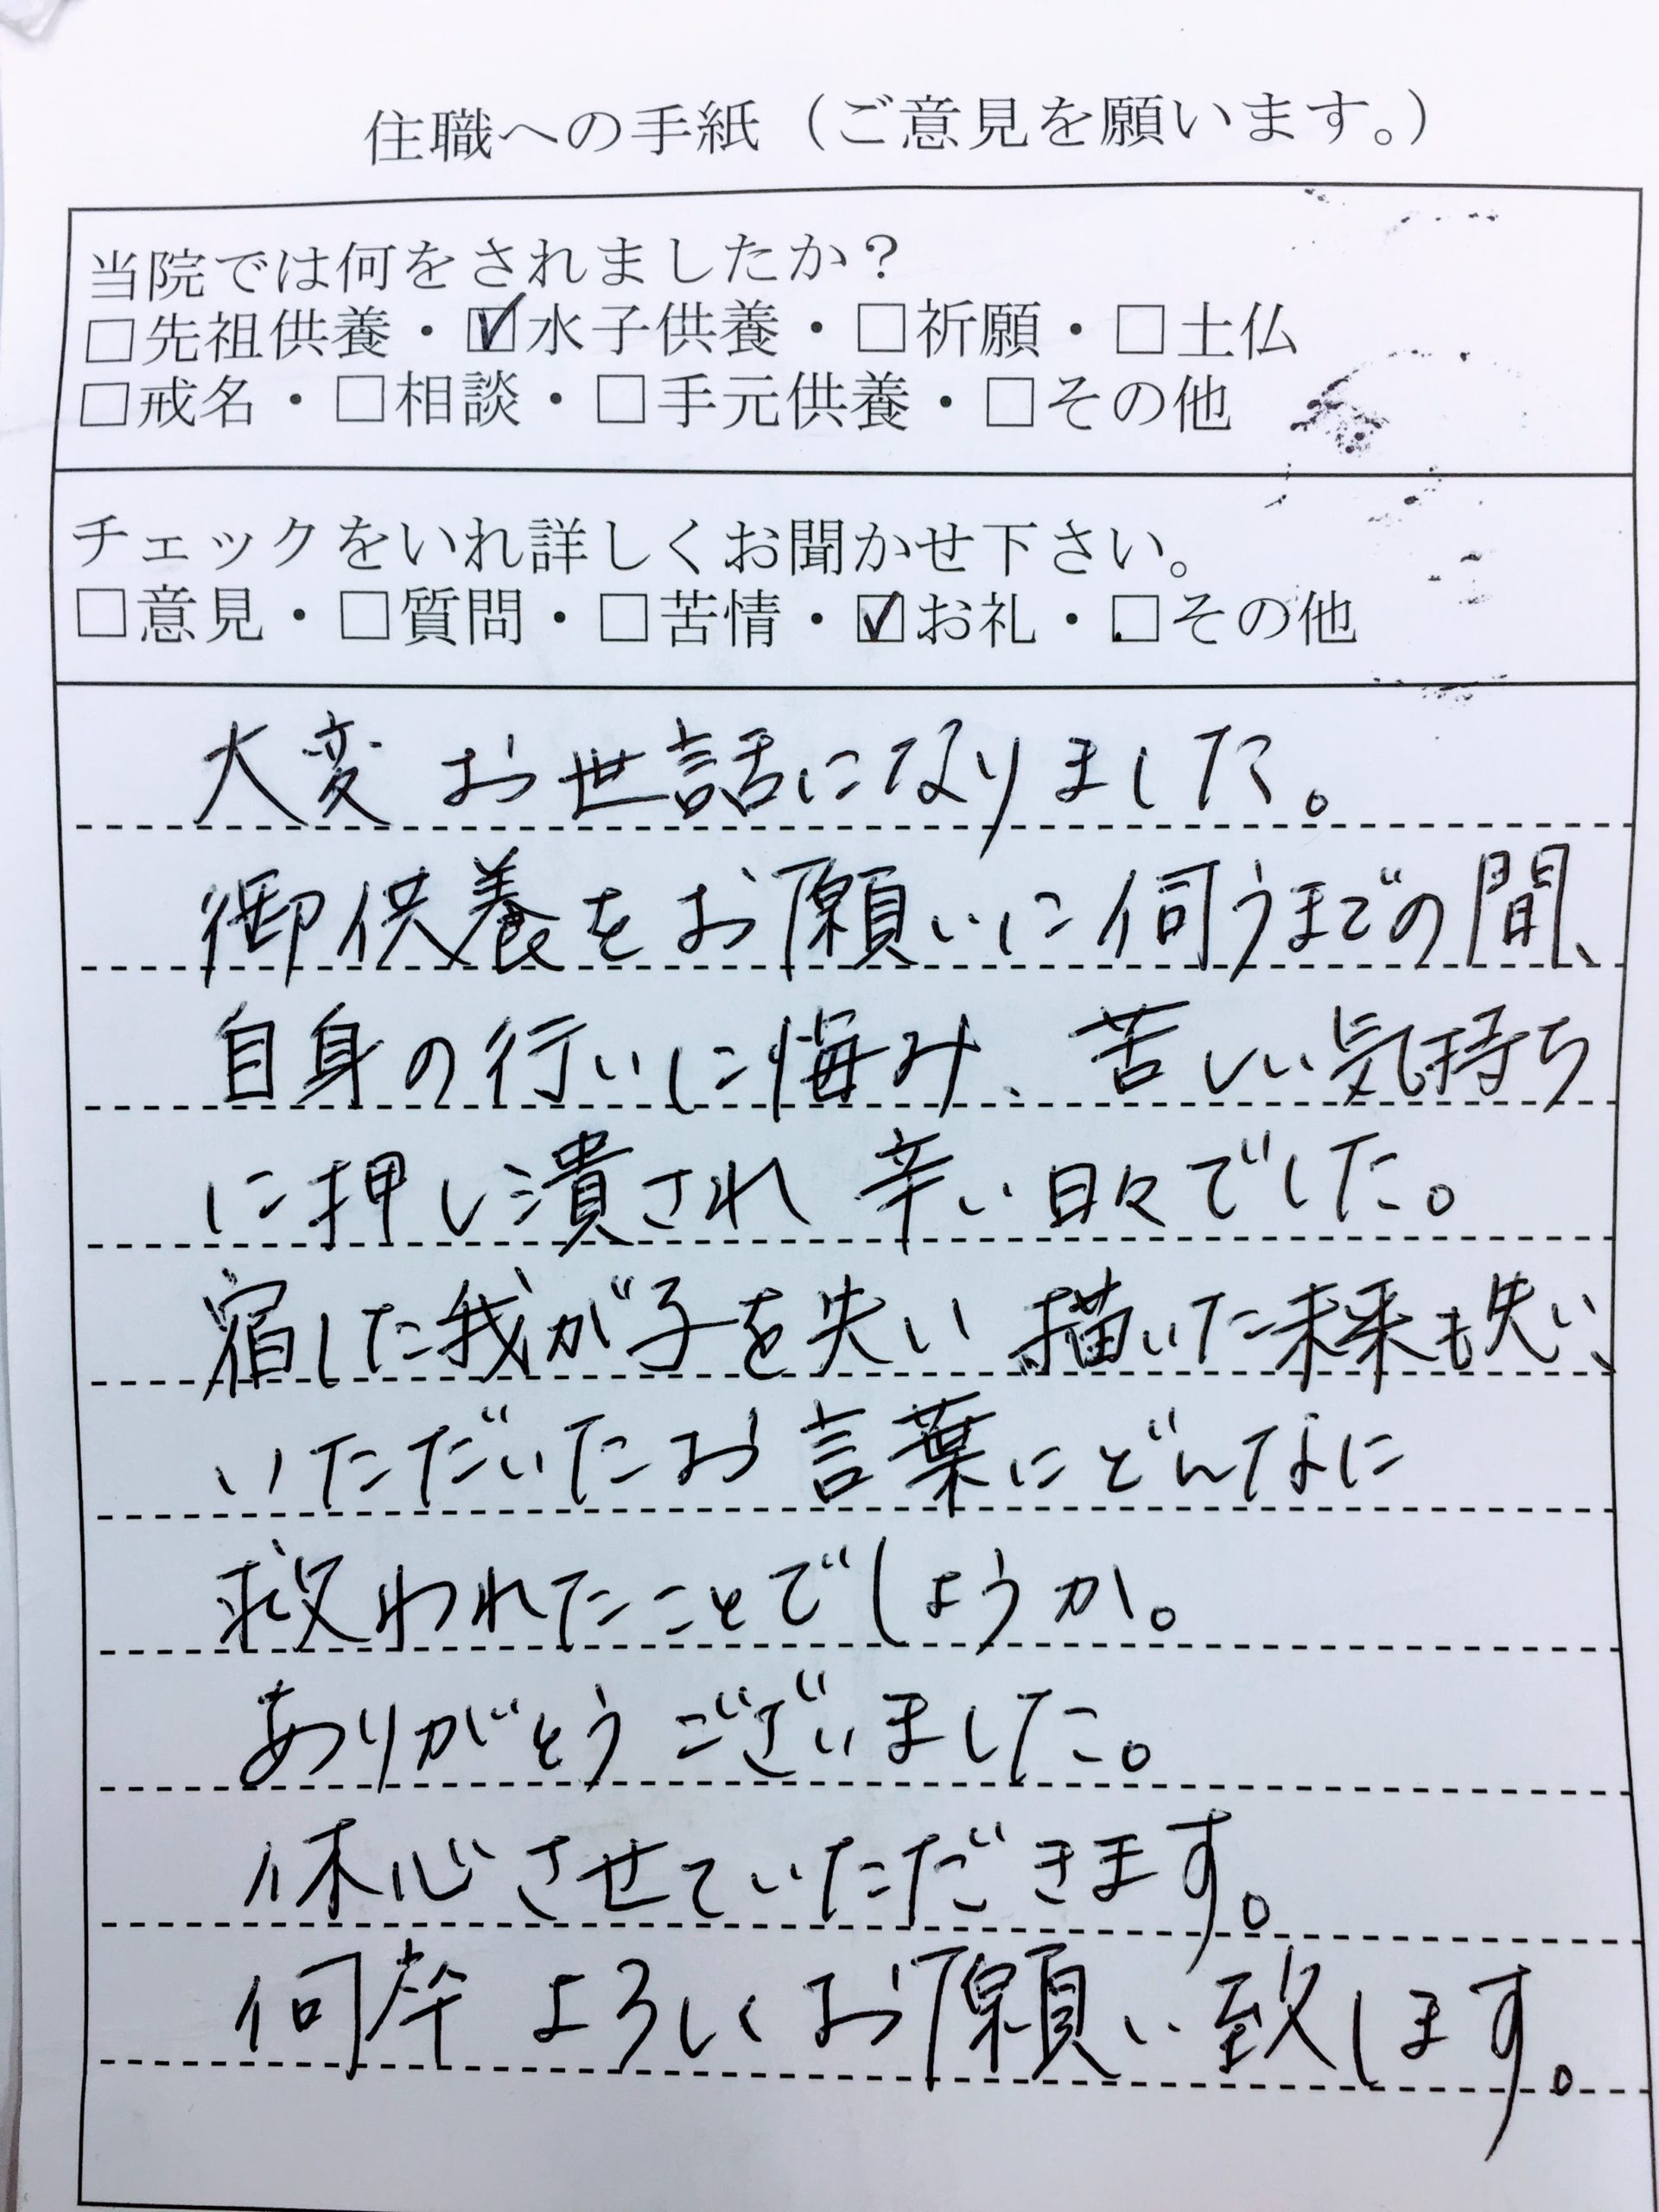 住職への手紙（ご意見を願います。）
当院では何をされましたか？
□先祖供養・☑水子供養・□祈願・□土仏
□戒名・□相談・□手元供養・□その他
チェックをいれ詳しくお聞かせ下さい。
□意見・□質問・□苦情・☑お礼・□その他
大変お世話になりました。
御供養をお願いに伺うまでの間、
自身の行いに悔み、苦しい気持ち
に押し潰され辛い日々でした。
宿した我が子を失い描いた未来も失い、
いただいたお言葉にどんなに
救われたことでしょうか。
ありがとうございました。
休心させていただきます。
何卒よろしくお願い致します。